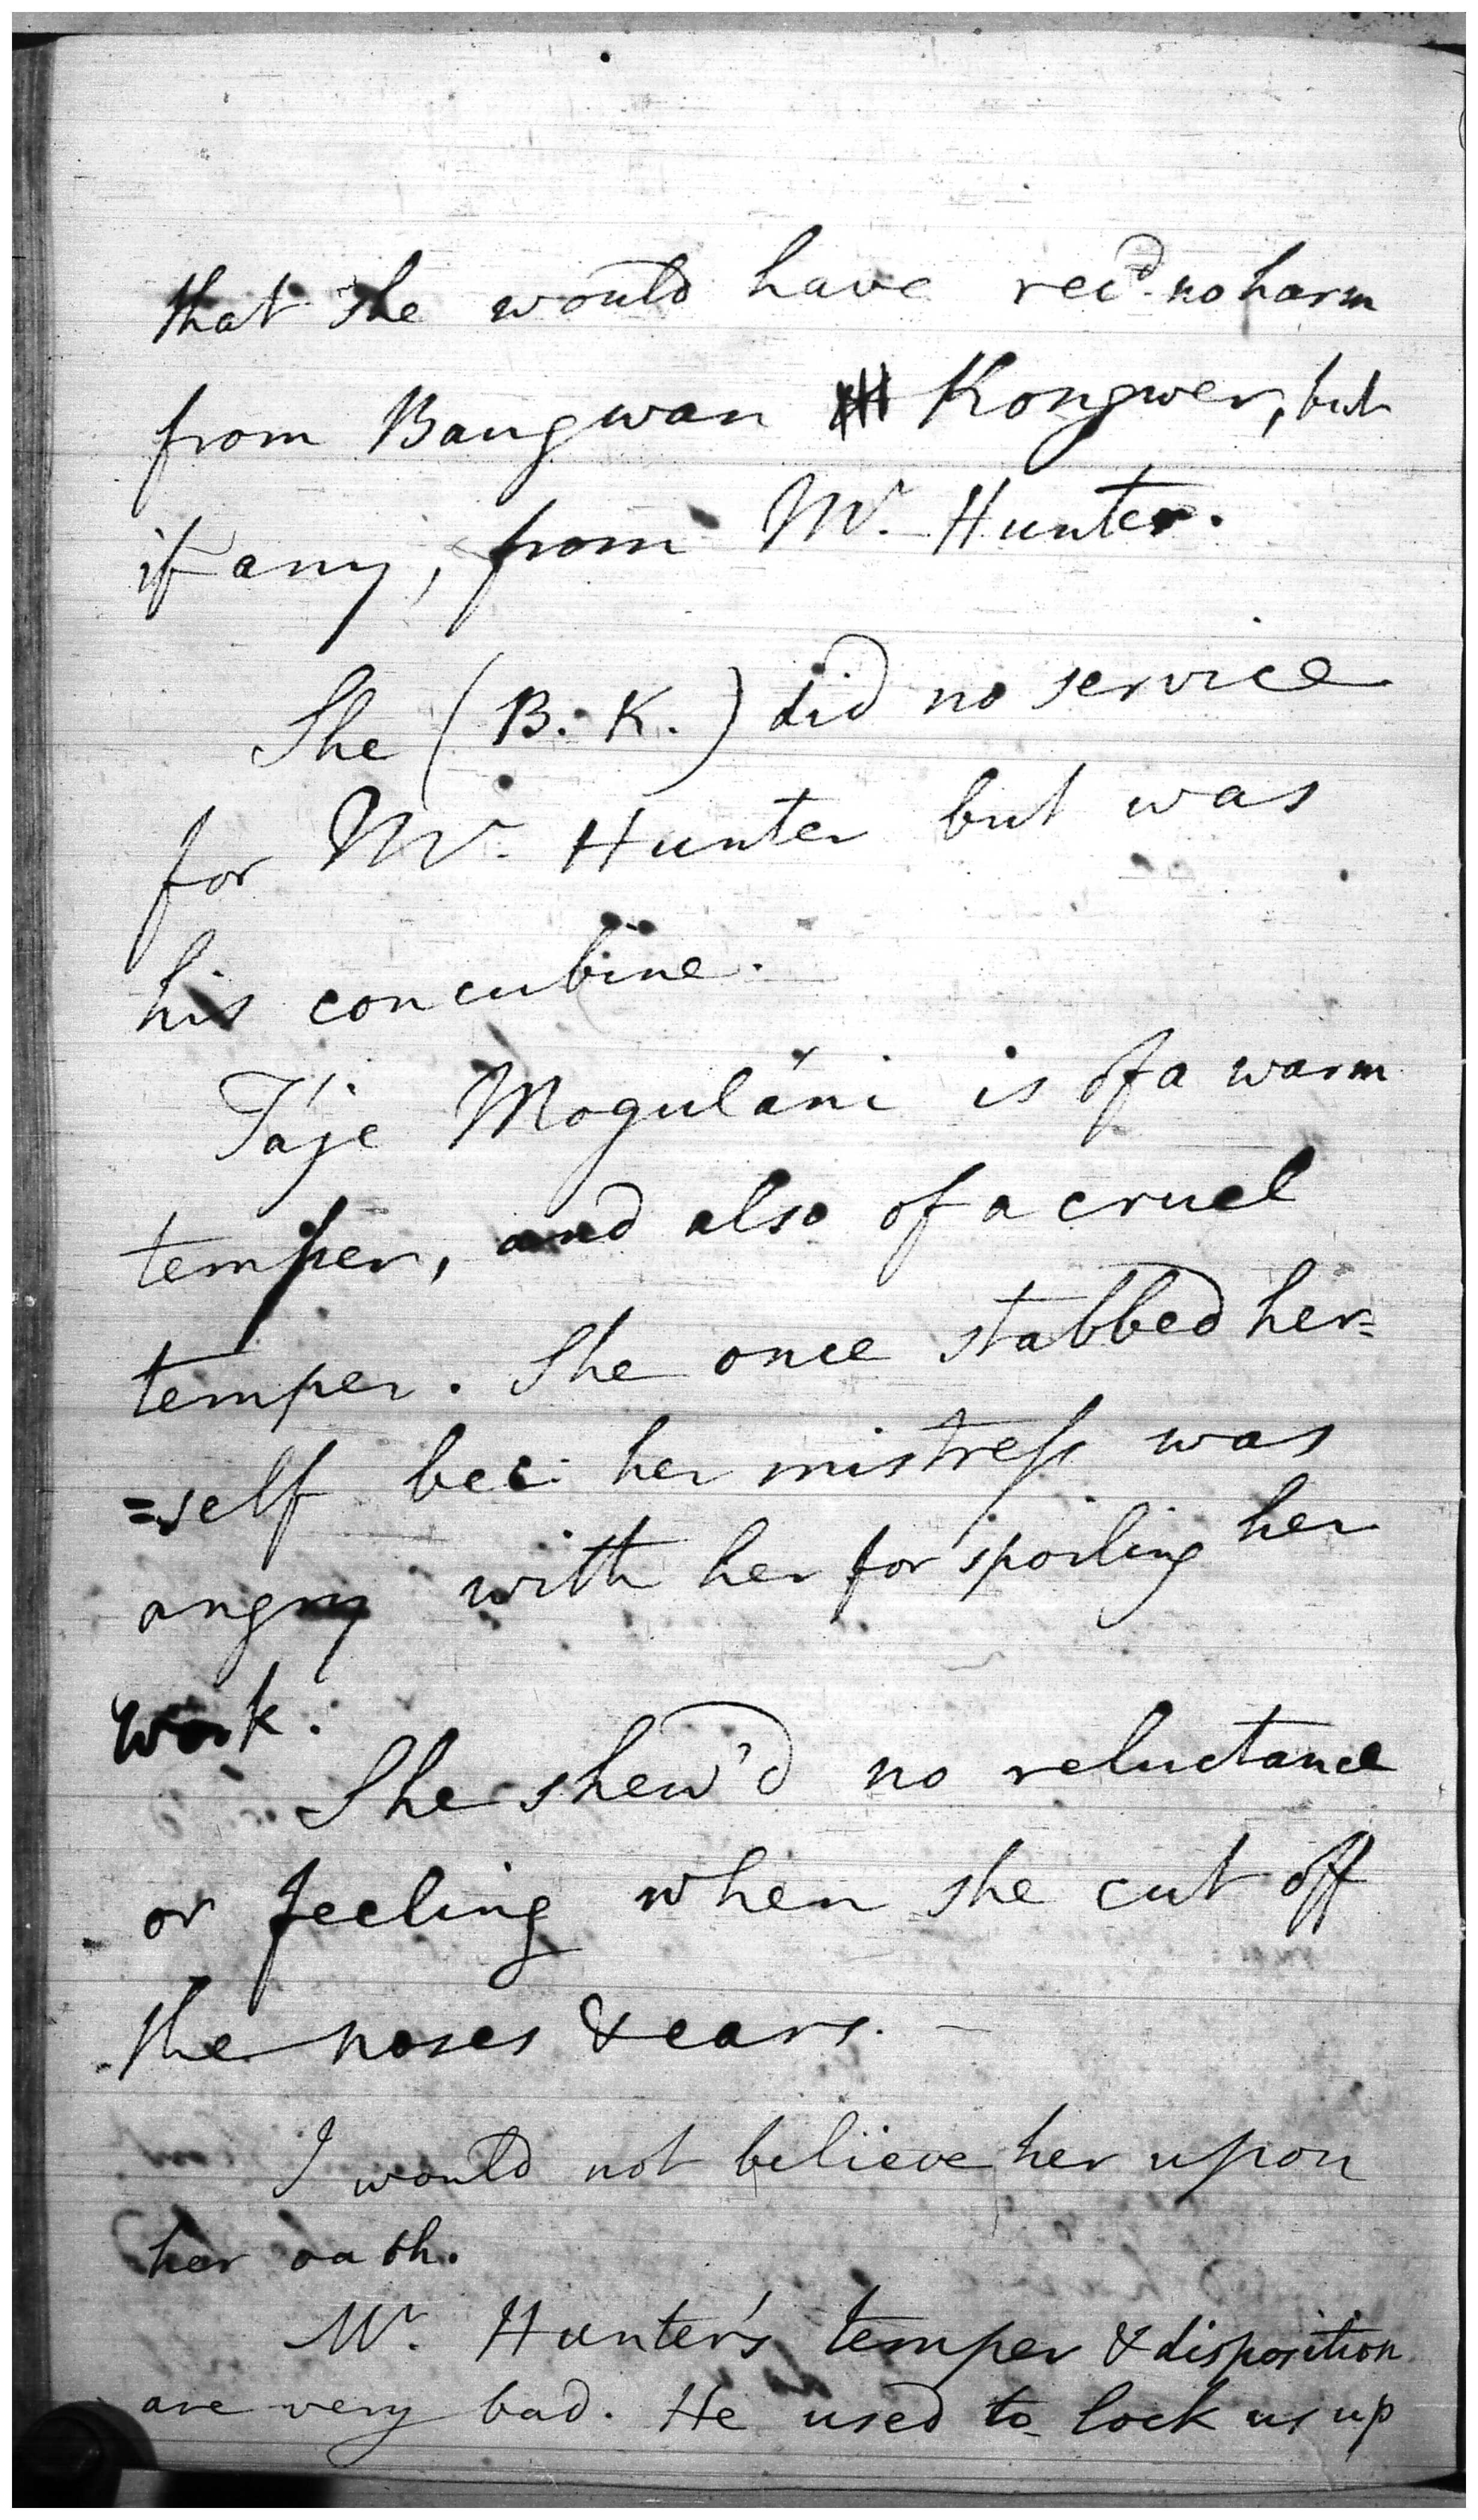 that she would have rec'd no harm
from Baugwan Kongwer, but
if any, from Mr. Hunter.
She (B. K.) did no service
for Mr. Hunter but was
his concubine.
Táje Moguláni is of a warm
temper, and also of a cruel
temper. She once stabbed her=
=self bec: her mistress was
angry with her for spoiling her
work.
She shew'd no reluctance
or feeling when she cut off
the noses & ears. –
I would not believe her upon
her oath.
Mr. Hunter's temper & disposition
are very bad. He used to lock us up